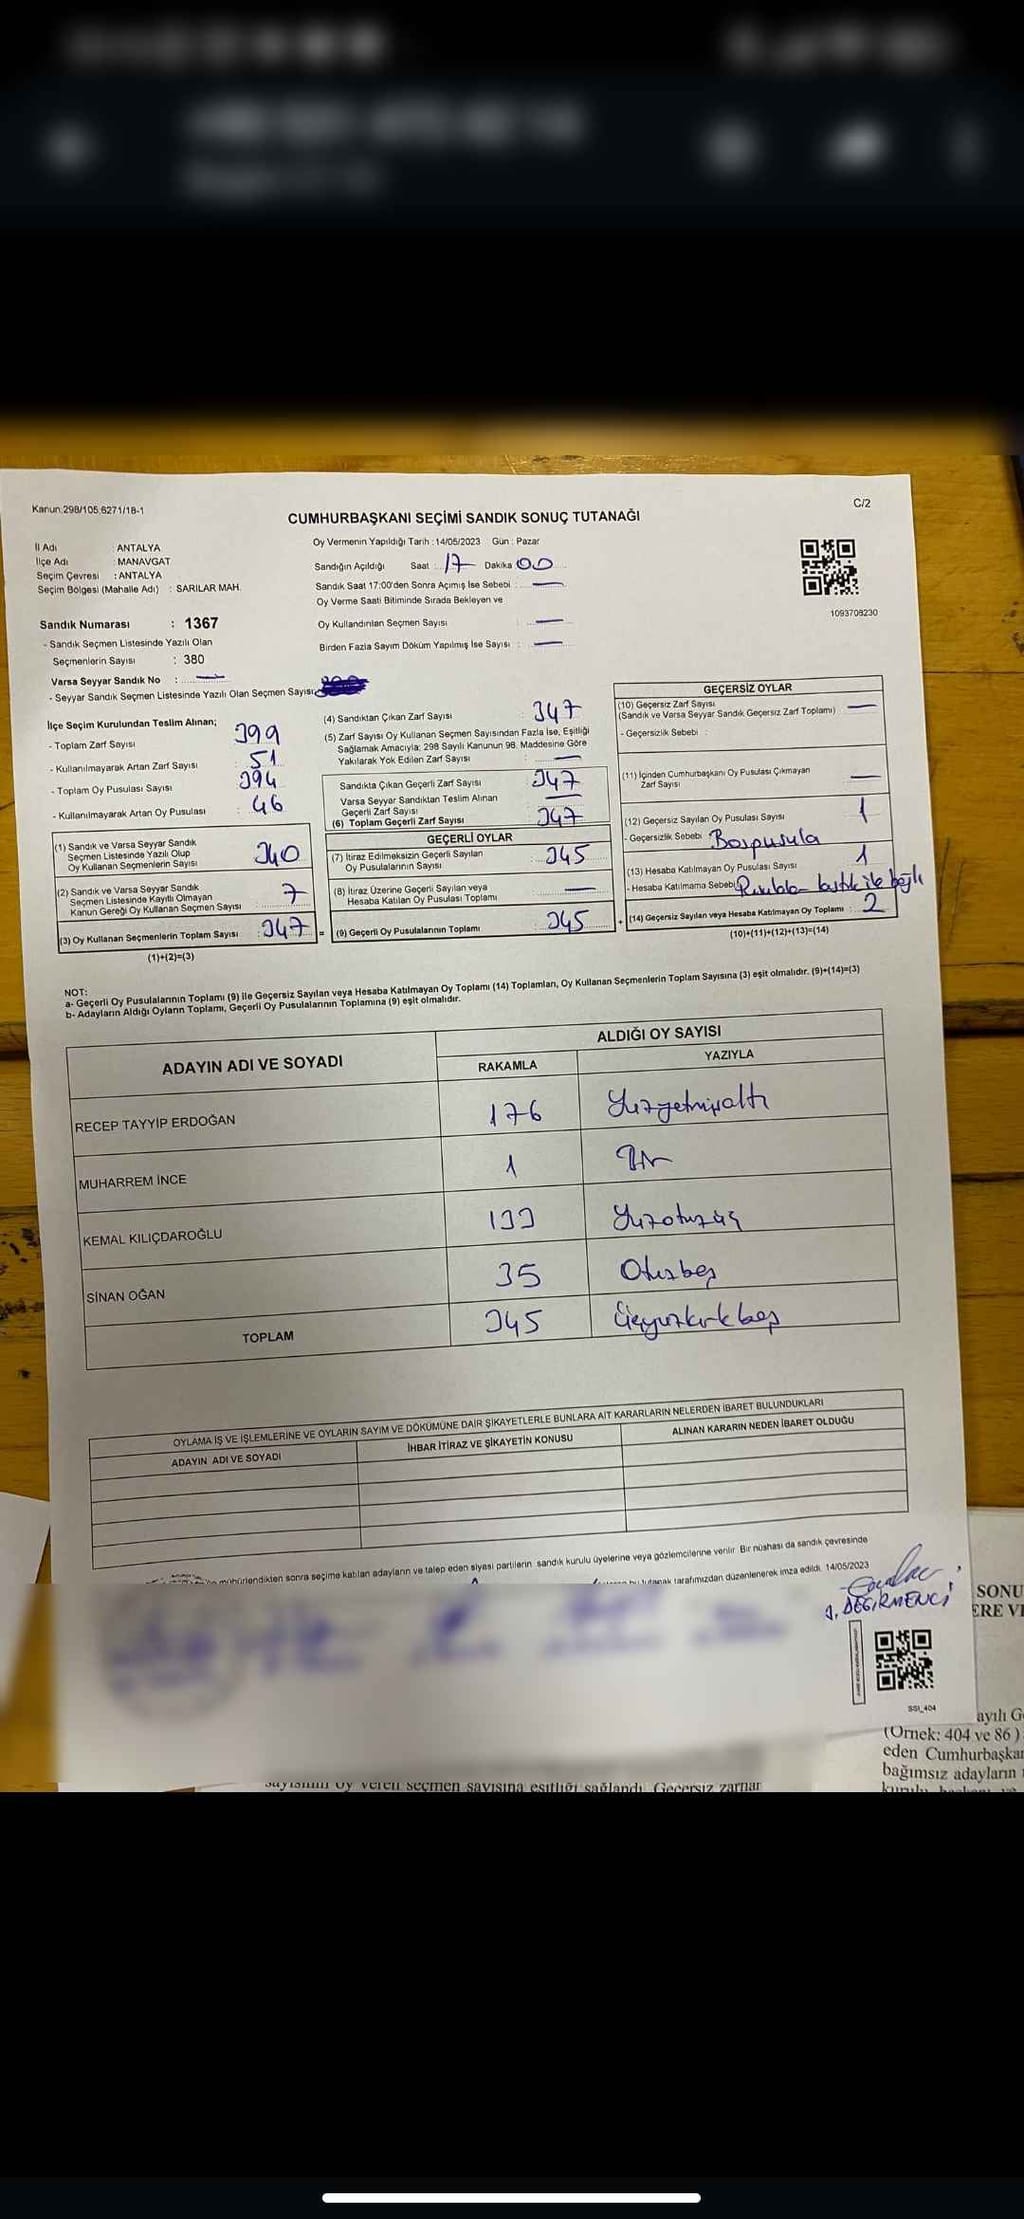 Kanun.298/105,6271/18-1
C/2
CUMHURBAŞKANI SEÇİMİ SANDIK SONUÇ TUTANAĞI
İl Adı : ANTALYA
İlçe Adı : MANAVGAT
Seçim Çevresi : ANTALYA
Seçim Bölgesi (Mahalle Adı) : SARILAR MAH.
Oy Vermenin Yapıldığı Tarih : 14/05/2023 Gün : Pazar
Sandığın Açıldığı Saat : 17 Dakika 00
Sandık Saat 17:00'den Sonra Açımış İse Sebebi : —
Oy Verme Saati Bitiminde Sırada Bekleyen ve
Oy Kullandırılan Seçmen Sayısı : —
Birden Fazla Sayım Döküm Yapılmış İse Sayısı : —
1093708230
Sandık Numarası : 1367
- Sandık Seçmen Listesinde Yazılı Olan
Seçmenlerin Sayısı : 380
Varsa Seyyar Sandık No : —
- Seyyar Sandık Seçmen Listesinde Yazılı Olan Seçmen Sayısı
İlçe Seçim Kurulundan Teslim Alınan;
- Toplam Zarf Sayısı 399
- Kullanılmayarak Artan Zarf Sayısı 51
- Toplam Oy Pusulası Sayısı 394
- Kullanılmayarak Artan Oy Pusulası : 46
(1) Sandık ve Varsa Seyyar Sandık
Seçmen Listesinde Yazılı Olup
Oy Kullanan Seçmenlerin Sayısı 340
(2) Sandık ve Varsa Seyyar Sandık
Seçmen Listesinde Kayıtlı Olmayan
Kanun Gereği Oy Kullanan Seçmen Sayısı 7
(3) Oy Kullanan Seçmenlerin Toplam Sayısı : 347 =
(1)+(2)=(3)
(4) Sandıktan Çıkan Zarf Sayısı : 347
(5) Zarf Sayısı Oy Kullanan Seçmen Sayısından Fazla İse, Eşitliği
Sağlamak Amacıyla; 298 Sayılı Kanunun 98. Maddesine Göre
Yakılarak Yok Edilen Zarf Sayısı : —
Sandıkta Çıkan Geçerli Zarf Sayısı : 347
Varsa Seyyar Sandıktan Teslim Alınan
Geçerli Zarf Sayısı : —
(6) Toplam Geçerli Zarf Sayısı : 347
GEÇERLİ OYLAR
(7) İtiraz Edilmeksizin Geçerli Sayılan
Oy Pusulalarının Sayısı : 345
(8) İtiraz Üzerine Geçerli Sayılan veya
Hesaba Katılan Oy Pusulası Toplamı : —
(9) Geçerli Oy Pusulalarının Toplamı : 345 +
GEÇERSİZ OYLAR
(10) Geçersiz Zarf Sayısı
(Sandık ve Varsa Seyyar Sandık Geçersiz Zarf Toplamı) —
- Geçersizlik Sebebi :
(11) İçinden Cumhurbaşkanı Oy Pusulası Çıkmayan
Zarf Sayısı —
(12) Geçersiz Sayılan Oy Pusulası Sayısı : 1
- Geçersizlik Sebebi Boşpusula
(13) Hesaba Katılmayan Oy Pusulası Sayısı : 1
- Hesaba Katılmama Sebebi
(14) Geçersiz Sayılan veya Hesaba Katılmayan Oy Toplamı : 2
(10)+(11)+(12)+(13)=(14)
NOT:
a- Geçerli Oy Pusulalarının Toplamı (9) ile Geçersiz Sayılan veya Hesaba Katılmayan Oy Toplamı (14) Toplamları, Oy Kullanan Seçmenlerin Toplam Sayısına (3) eşit olmalıdır. (9)+(14)=(3)
b- Adayların Aldığı Oyların Toplamı, Geçerli Oy Pusulalarının Toplamına (9) eşit olmalıdır.
ADAYIN ADI VE SOYADI
ALDIĞI OY SAYISI
RAKAMLA YAZIYLA
RECEP TAYYİP ERDOĞAN 176 Yüzyetmişaltı
MUHARREM İNCE 1 Bir
KEMAL KILIÇDAROĞLU 133 Yüzotuzüç
SİNAN OĞAN 35 Otuzbeş
TOPLAM 345 Üçyüzkırkbeş
OYLAMA İŞ VE İŞLEMLERİNE VE OYLARIN SAYIM VE DÖKÜMÜNE DAİR ŞİKAYETLERLE BUNLARA AİT KARARLARIN NELERDEN İBARET BULUNDUKLARI
ADAYIN ADI VE SOYADI İHBAR İTİRAZ VE ŞİKAYETİN KONUSU ALINAN KARARIN NEDEN İBARET OLDUĞU
mühürlendikten sonra seçime katılan adayların ve talep eden siyasi partilerin sandık kurulu üyelerine veya gözlemcilerine verilir. Bir nüshası da sandık çevresinde
tutanak tarafımızdan düzenlenerek imza edildi. 14/05/2023
DEĞİRMENCİ
SSL_404
SONU
ERE VE
ayılı G
(Örnek: 404 ve 86)
eden Cumhurbaşkan
bağımsız adayların
sayısının oy veren seçmen sayısına eşitliği sağlandı. Geçersiz zarflar